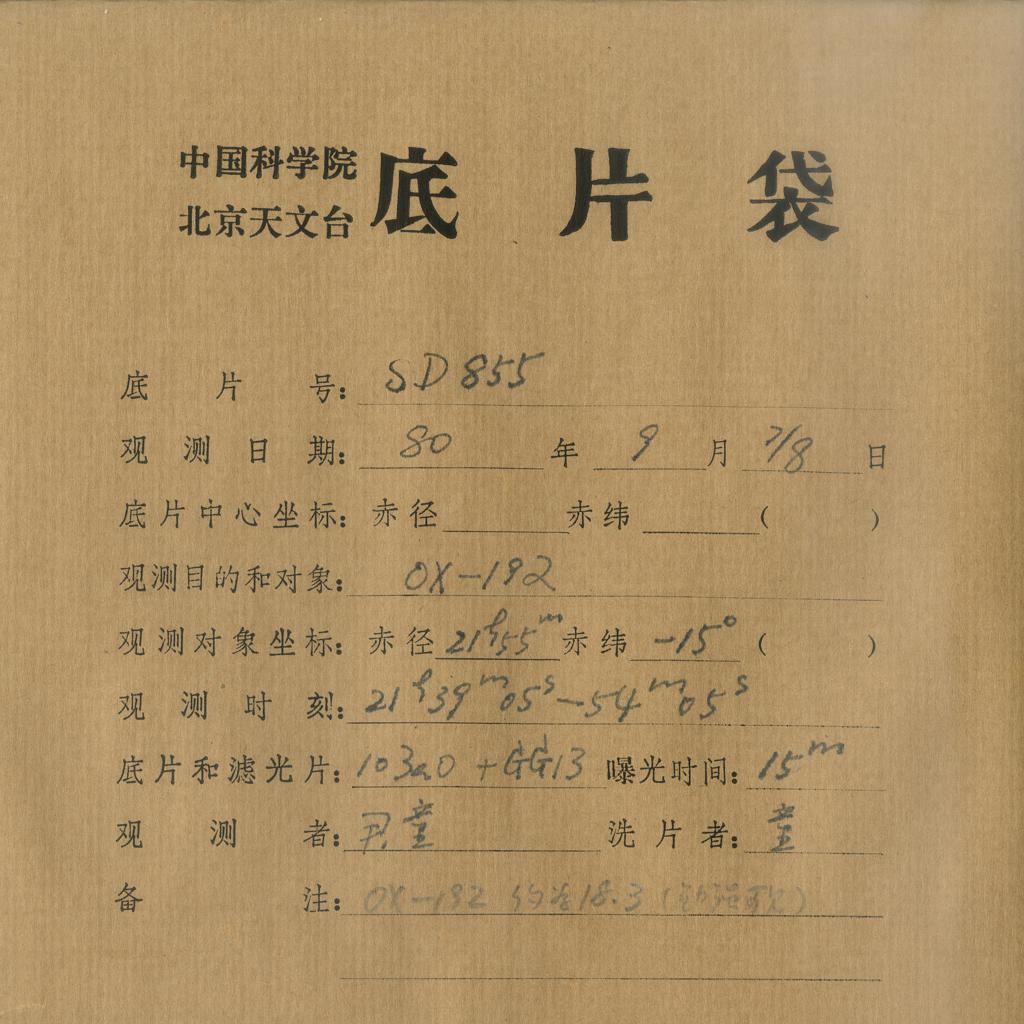 中国科学院
北京天文台
底片袋
底片号: SD855
观测日期: 80年9月7/8日
底片中心坐标: 赤径 赤纬 ( )
观测目的和对象: OX-192
观测对象坐标: 赤径21h55m赤纬-15° ( )
观测时刻: 21h39m05s-54m05s
底片和滤光片: 103aO+GG13 曝光时间: 15m
观测者: 尹童 洗片者: 童
备注: OX-192 18.3